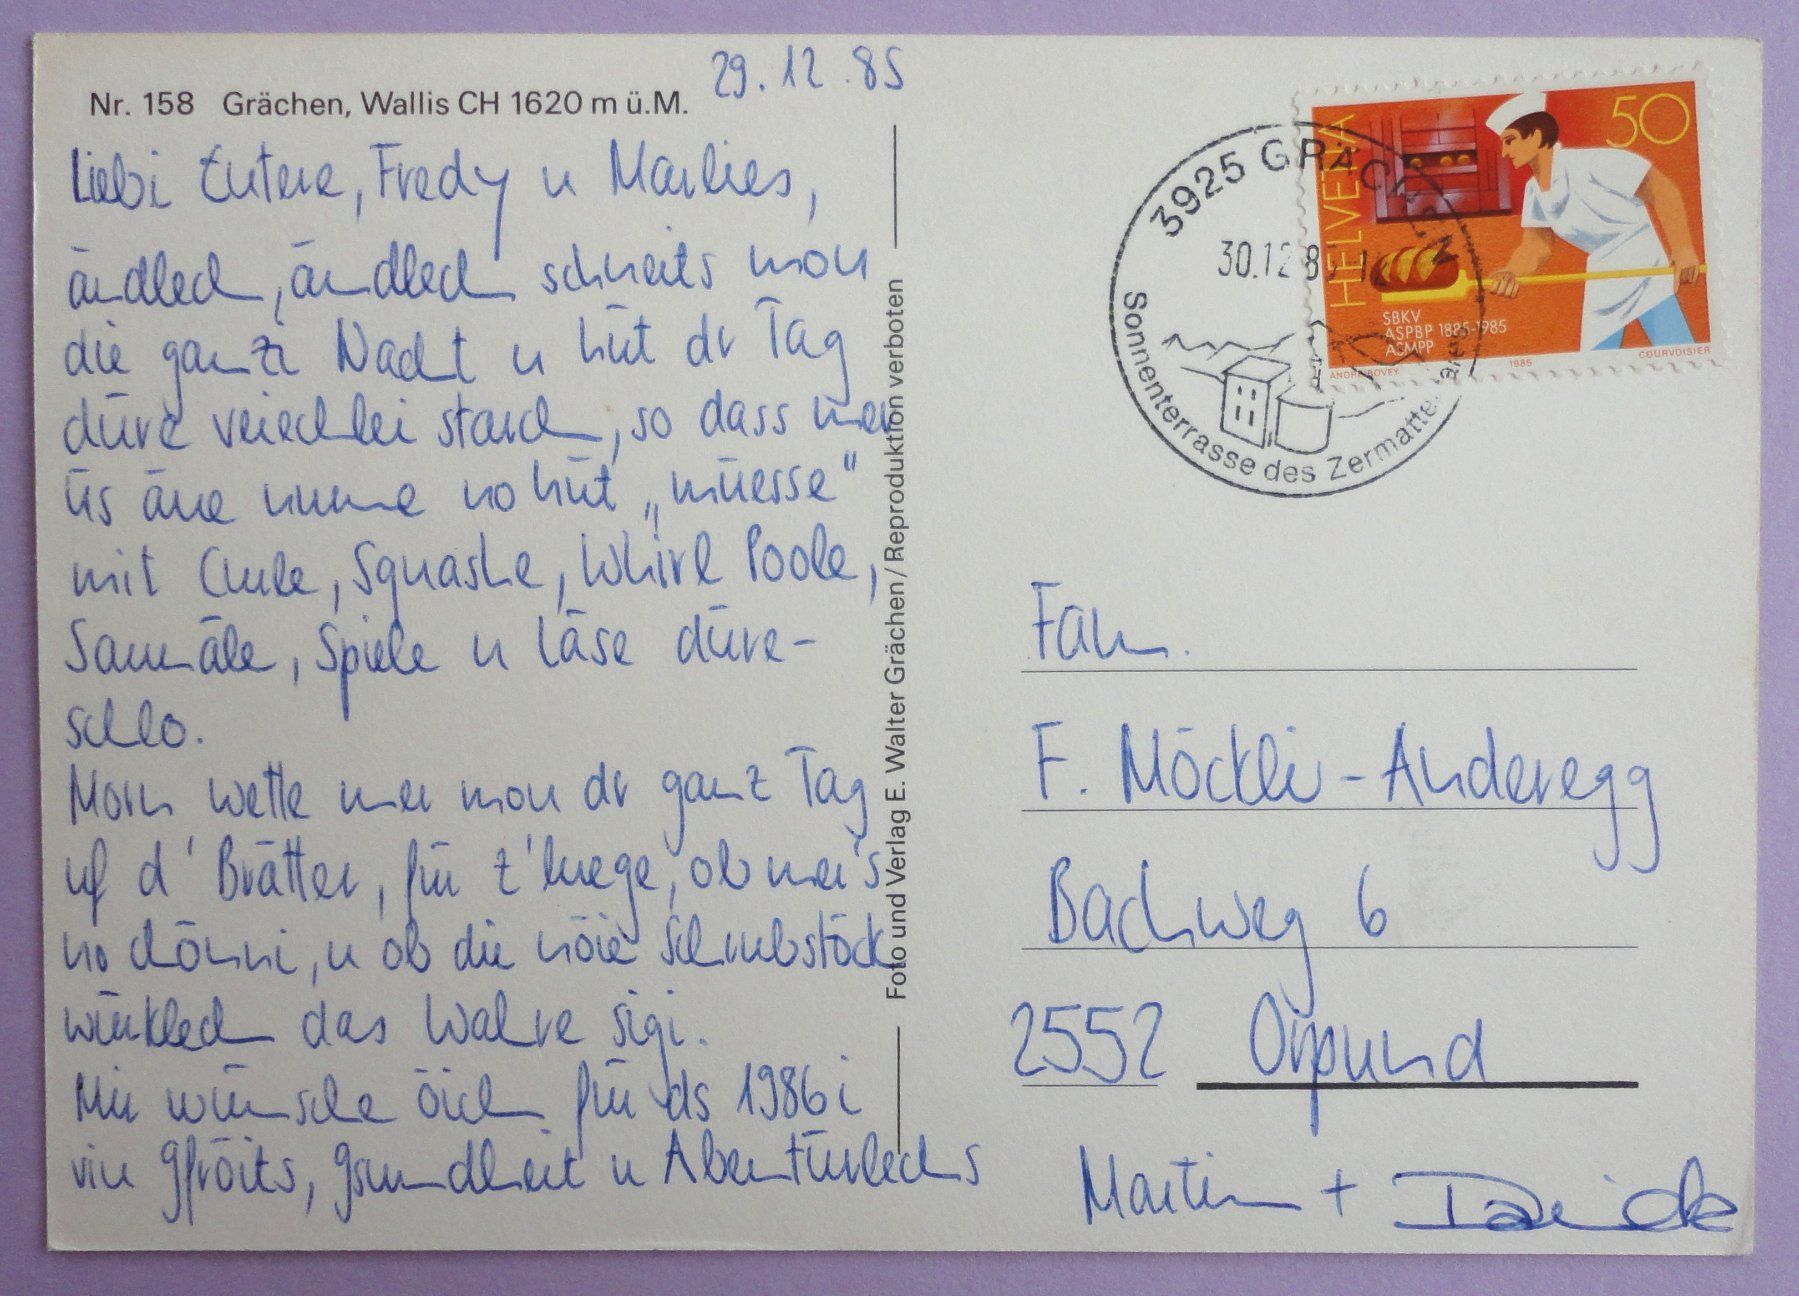 29.12.85
Nr. 158 Grächen, Wallis CH 1620 m ü.M.
Liebi Eutere, Fredy u Marlies,
ändlech, ändlech schneits mou
die ganzi Nacht u hüt dr Tag
düre veiechlei starch, so dass mer
üs äue numme no hüt „müesse"
mit Chule, Squashe, Whirl Poole,
Saunäle, Spiele u Läse düre-
schlo.
Morn wette mer mou dr ganz Tag
uf d' Brätter, für z'luege, ob mer's
no chönni, u ob die nöie Schubstöck
würklech das Wahre sigi.
Mir wünsche öich für ds 1986i
viu Gfröits, Gsundheit u Abentürlechs
Foto und Verlag E. Walter Grächen / Reproduktion verboten
HELVETIA
50
SBKV
ASPBP 1885-1985
ASMPP
ANDRÉ BOVEY 1985 COURVOISIER
3925 GRÄCHEN
30.12.85
Sonnenterrasse des Zermattertales
Fam.
F. Möckli-Anderegg
Bachweg 6
2552 Orpund
Martin +